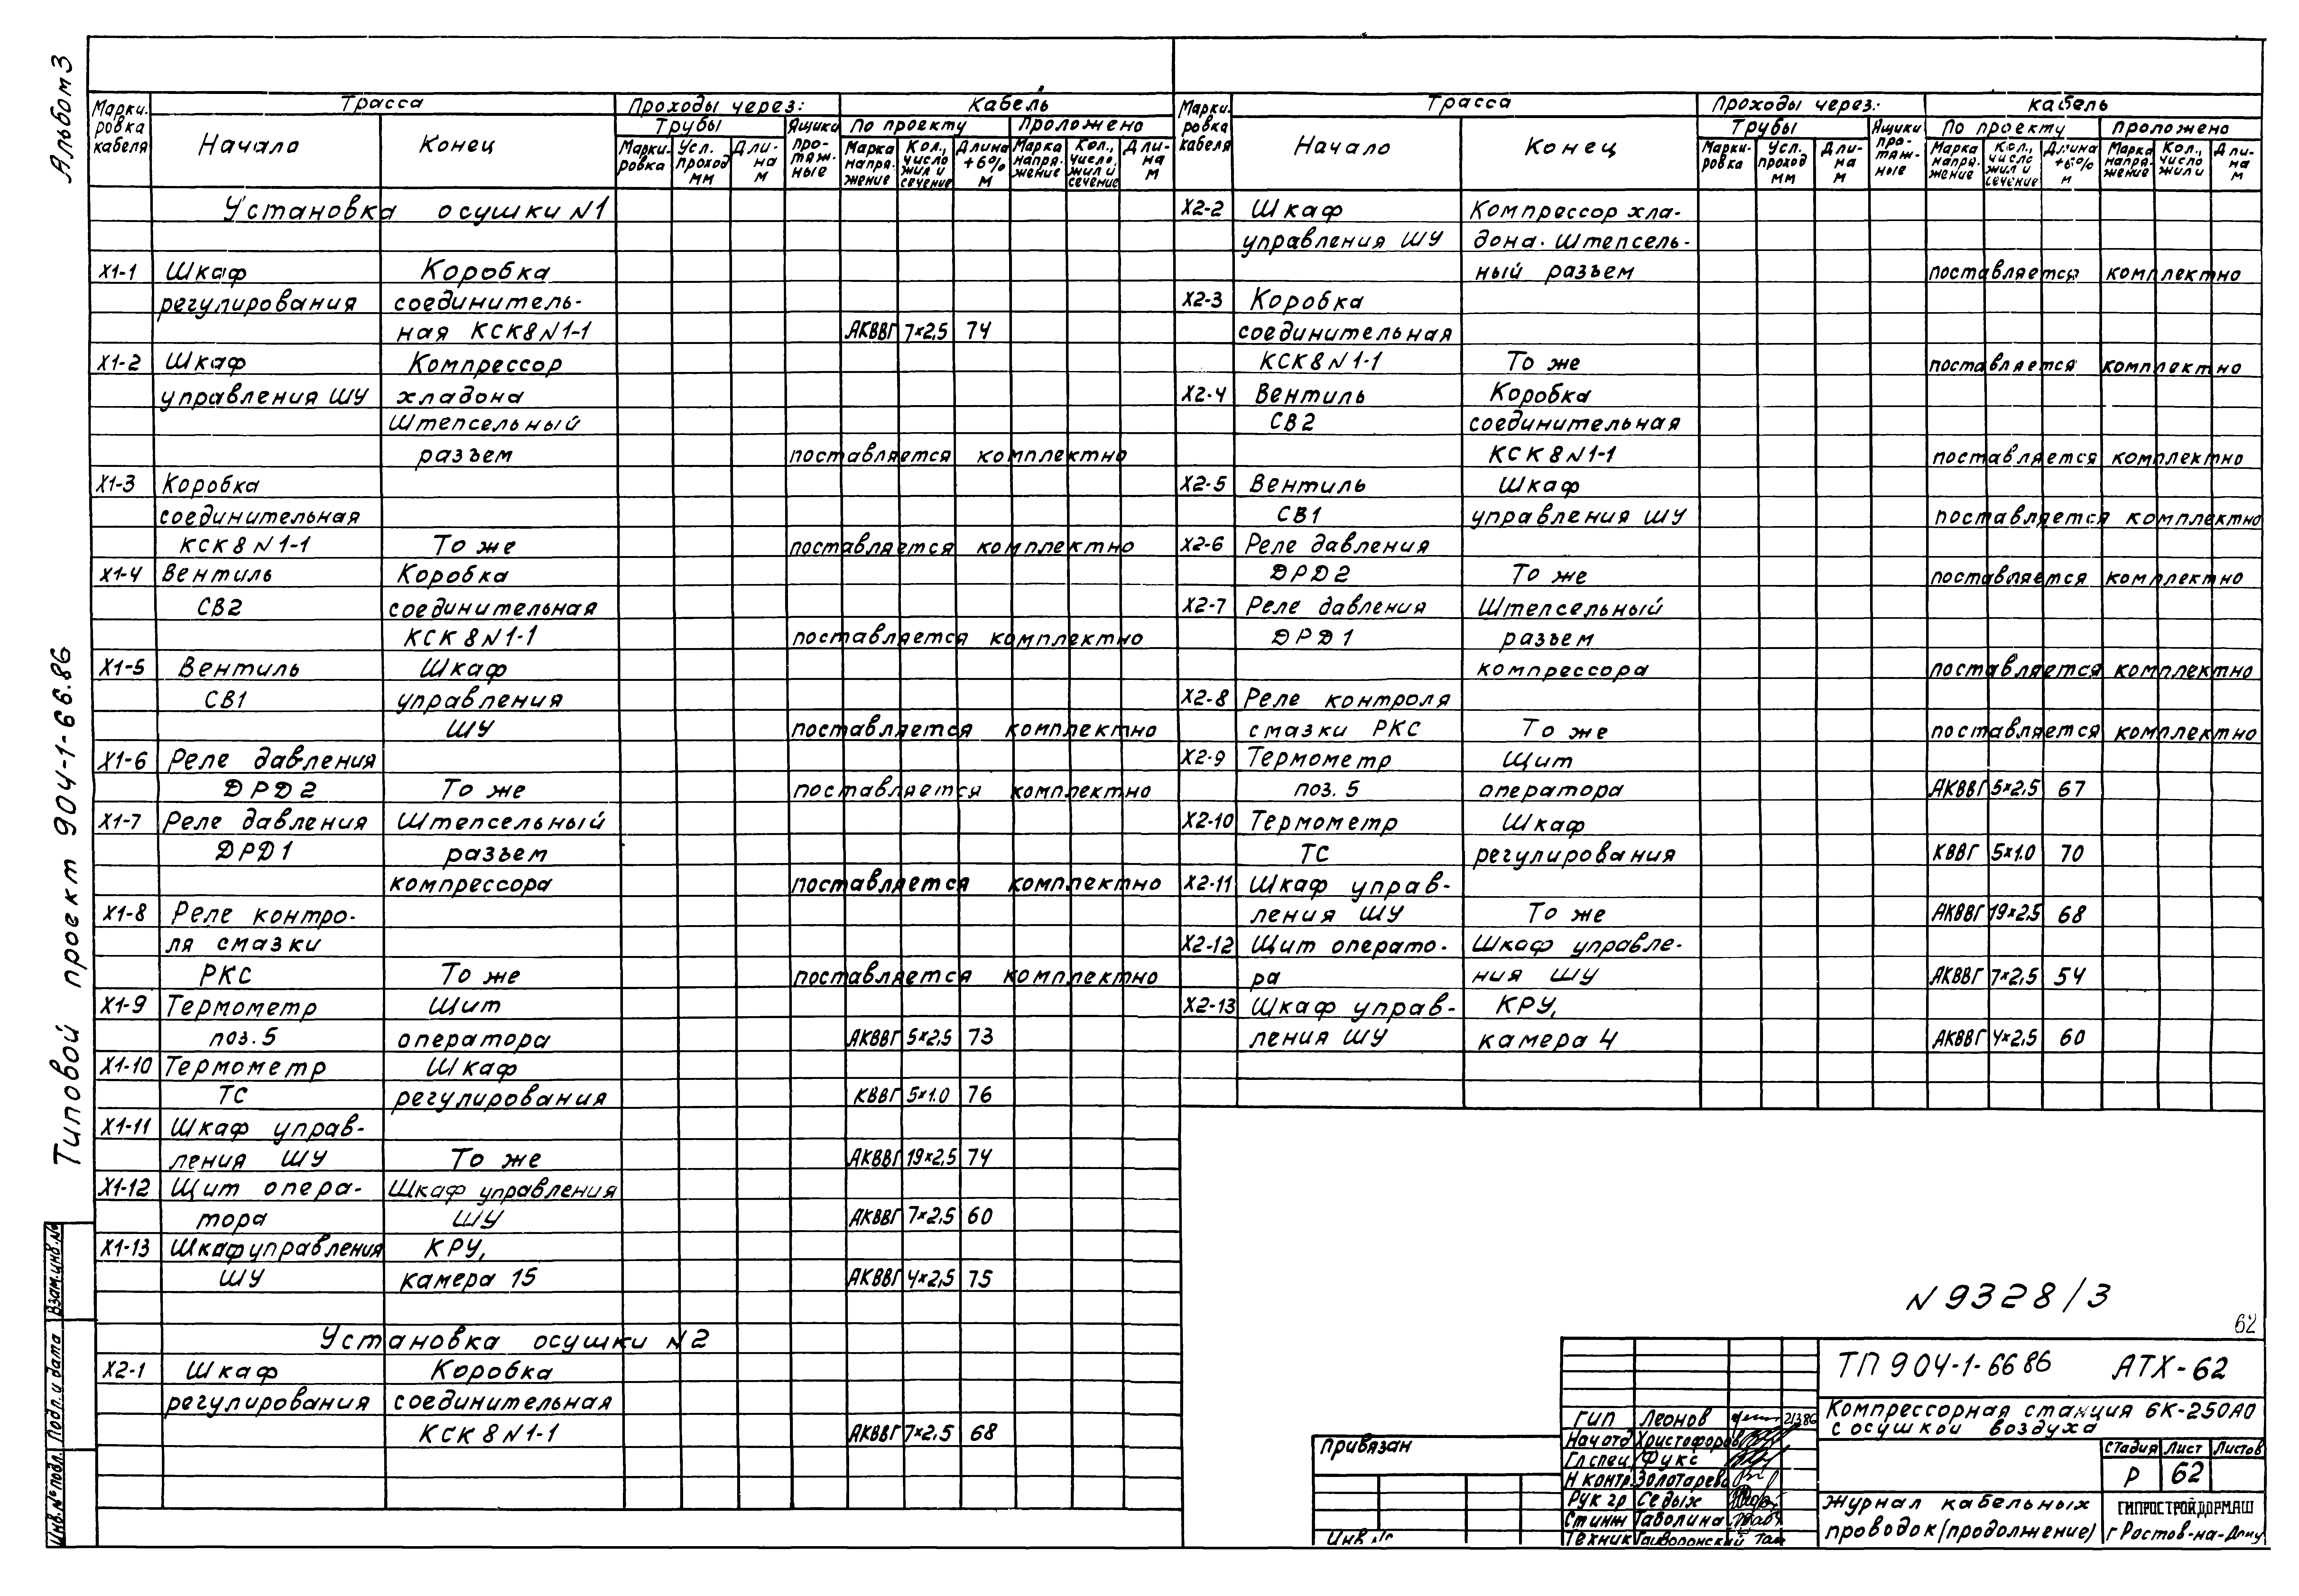 Альбом 3
Типовой проект 904-1-66.86
Взам.инв.№
Подп.и дата
Инв.№ подл.
Марки-ровка кабеля | Трасса | Проходы через: | Кабель
Начало | Конец | Трубы | Ящики про-тяж-ные | По проекту | Проложено
Марки-ровка | Усл. проход мм | Дли-на м | Марка напря-жение | Кол., число жил и сечение | Длина +6% м | Марка напря-жение | Кол., число, жил и сечение | Дли-на м
Установка осушки N1
Х1-1 Шкаф Коробка
регулирования соединитель-
ная КСК8N1-1 АКВВГ 7×2,5 74
Х1-2 Шкаф Компрессор
управления ШУ хладона
Штепсельный
разъем поставляется комплектно
Х1-3 Коробка
соединительная
КСК8N1-1 То же поставляется комплектно
Х1-4 Вентиль Коробка
СВ2 соединительная
КСК8N1-1 поставляется комплектно
Х1-5 Вентиль Шкаф
СВ1 управления
ШУ поставляется комплектно
Х1-6 Реле давления
ДРД2 То же поставляется комплектно
Х1-7 Реле давления Штепсельный
ДРД1 разъем
компрессора поставляется комплектно
Х1-8 Реле контро-
ля смазки
РКС То же поставляется комплектно
Х1-9 Термометр Щит
поз. 5 оператора АКВВГ 5×2,5 73
Х1-10 Термометр Шкаф
ТС регулирования КВВГ 5×1.0 76
Х1-11 Шкаф управ-
ления ШУ То же АКВВГ 19×2,5 74
Х1-12 Щит опера- Шкаф управления
тора ШУ АКВВГ 7×2,5 60
Х1-13 Шкаф управления КРУ,
ШУ камера 15 АКВВГ 4×2,5 75
Установка осушки N2
Х2-1 Шкаф Коробка
регулирования соединительная
КСК8N1-1 АКВВГ 7×2.5 68
Марки-ровка кабеля | Трасса | Проходы через: | кабель
Начало | Конец | Трубы | Ящики про-тяж-ные | По проекту | проложено
Марки-ровка | Усл. проход мм | Дли-на м | Марка напря-жение | Кол., число жил и сечение | Длина +6% м | Марка напря-жение | Кол., число жил и | Дли-на м
Х2-2 Шкаф Компрессор хла-
управления ШУ дона. Штепсель-
ный разъем поставляется комплектно
Х2-3 Коробка
соединительная
КСК8N1-1 То же поставляется комплектно
Х2-4 Вентиль Коробка
СВ2 соединительная
КСК8N1-1 поставляется комплектно
Х2-5 Вентиль Шкаф
СВ1 управления ШУ поставляется комплектно
Х2-6 Реле давления
ДРД2 То же поставляется комплектно
Х2-7 Реле давления Штепсельный
ДРД1 разъем
компрессора поставляется комплектно
Х2-8 Реле контроля
смазки РКС То же поставляется комплектно
Х2-9 Термометр Щит
поз. 5 оператора АКВВГ 5×2.5 67
Х2-10 Термометр Шкаф
ТС регулирования КВВГ 5×1.0 70
Х2-11 Шкаф управ-
ления ШУ То же АКВВГ 19×2.5 68
Х2-12 Щит операто- Шкаф управле-
ра ния ШУ АКВВГ 7×2,5 54
Х2-13 Шкаф управ- КРУ,
ления ШУ камера 4 АКВВГ 4×2,5 60
N 9328/3
62
ТП 904-1-66 86 АТХ-62
Компрессорная станция 6К-250АО
с осушкой воздуха
Стадия Лист Листов
Р 62
Журнал кабельных
проводок (продолжение)
ГИПРОСТРОЙДОРМАШ
г Ростов-на-Дону
ГИП Леонов 21386
Нач отд Христофоров
Гл спец. Фукс
Н контр. Золотарева
Рук гр Седых
Ст инж Таволина
Техник Гайворонский
Привязан
Инв №